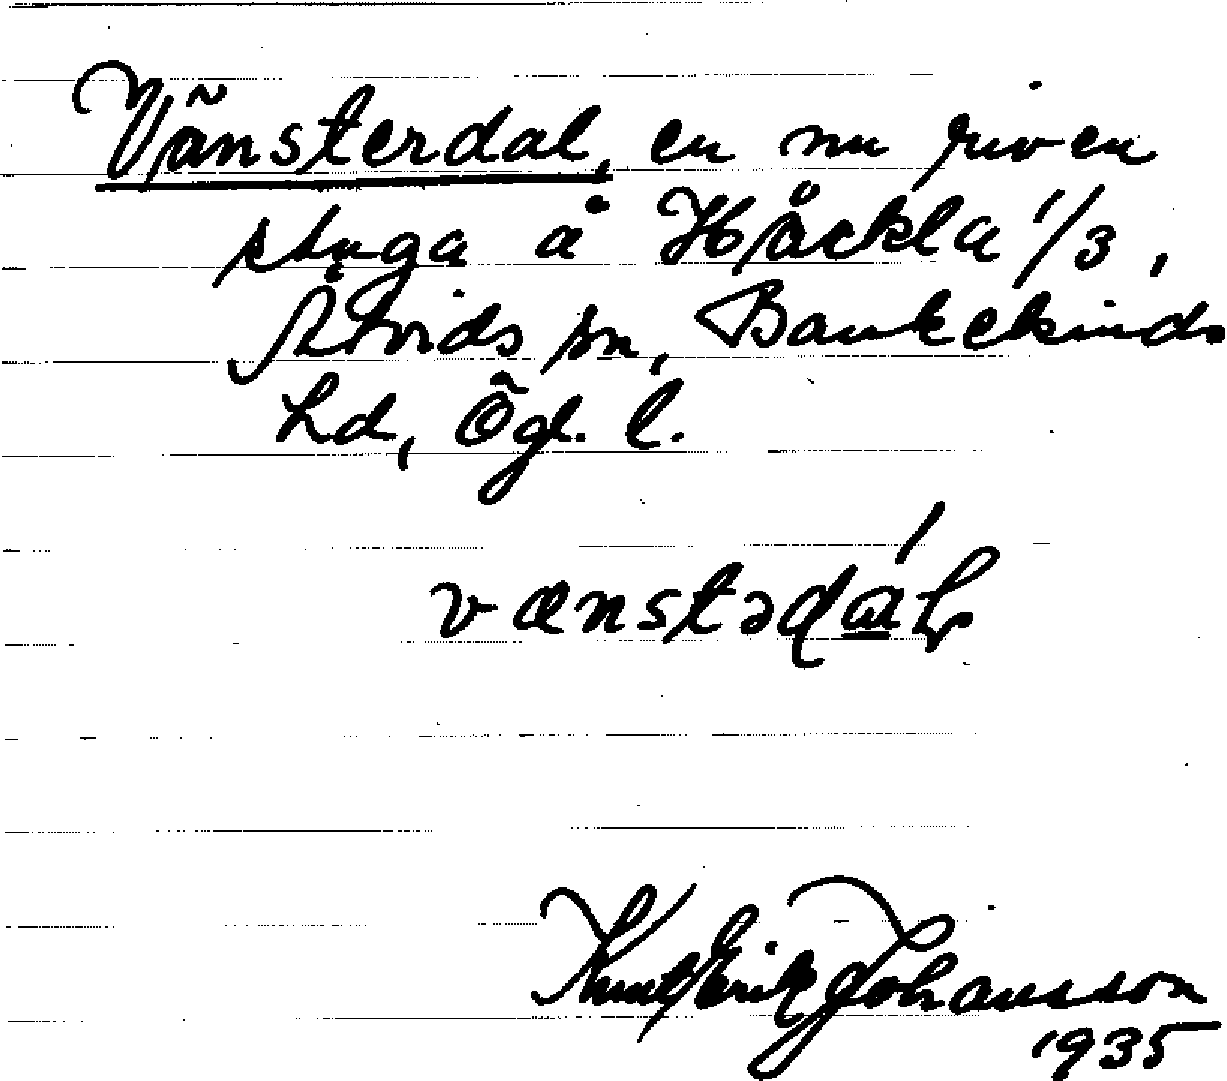 Vänsterdal, en nu riven
stuga å Håckla 1/3,
Åtvids sn, Bankekinds
hd, Ögl. l.
vænstədɑ́ɩ
Knut Erik Johansson
1935